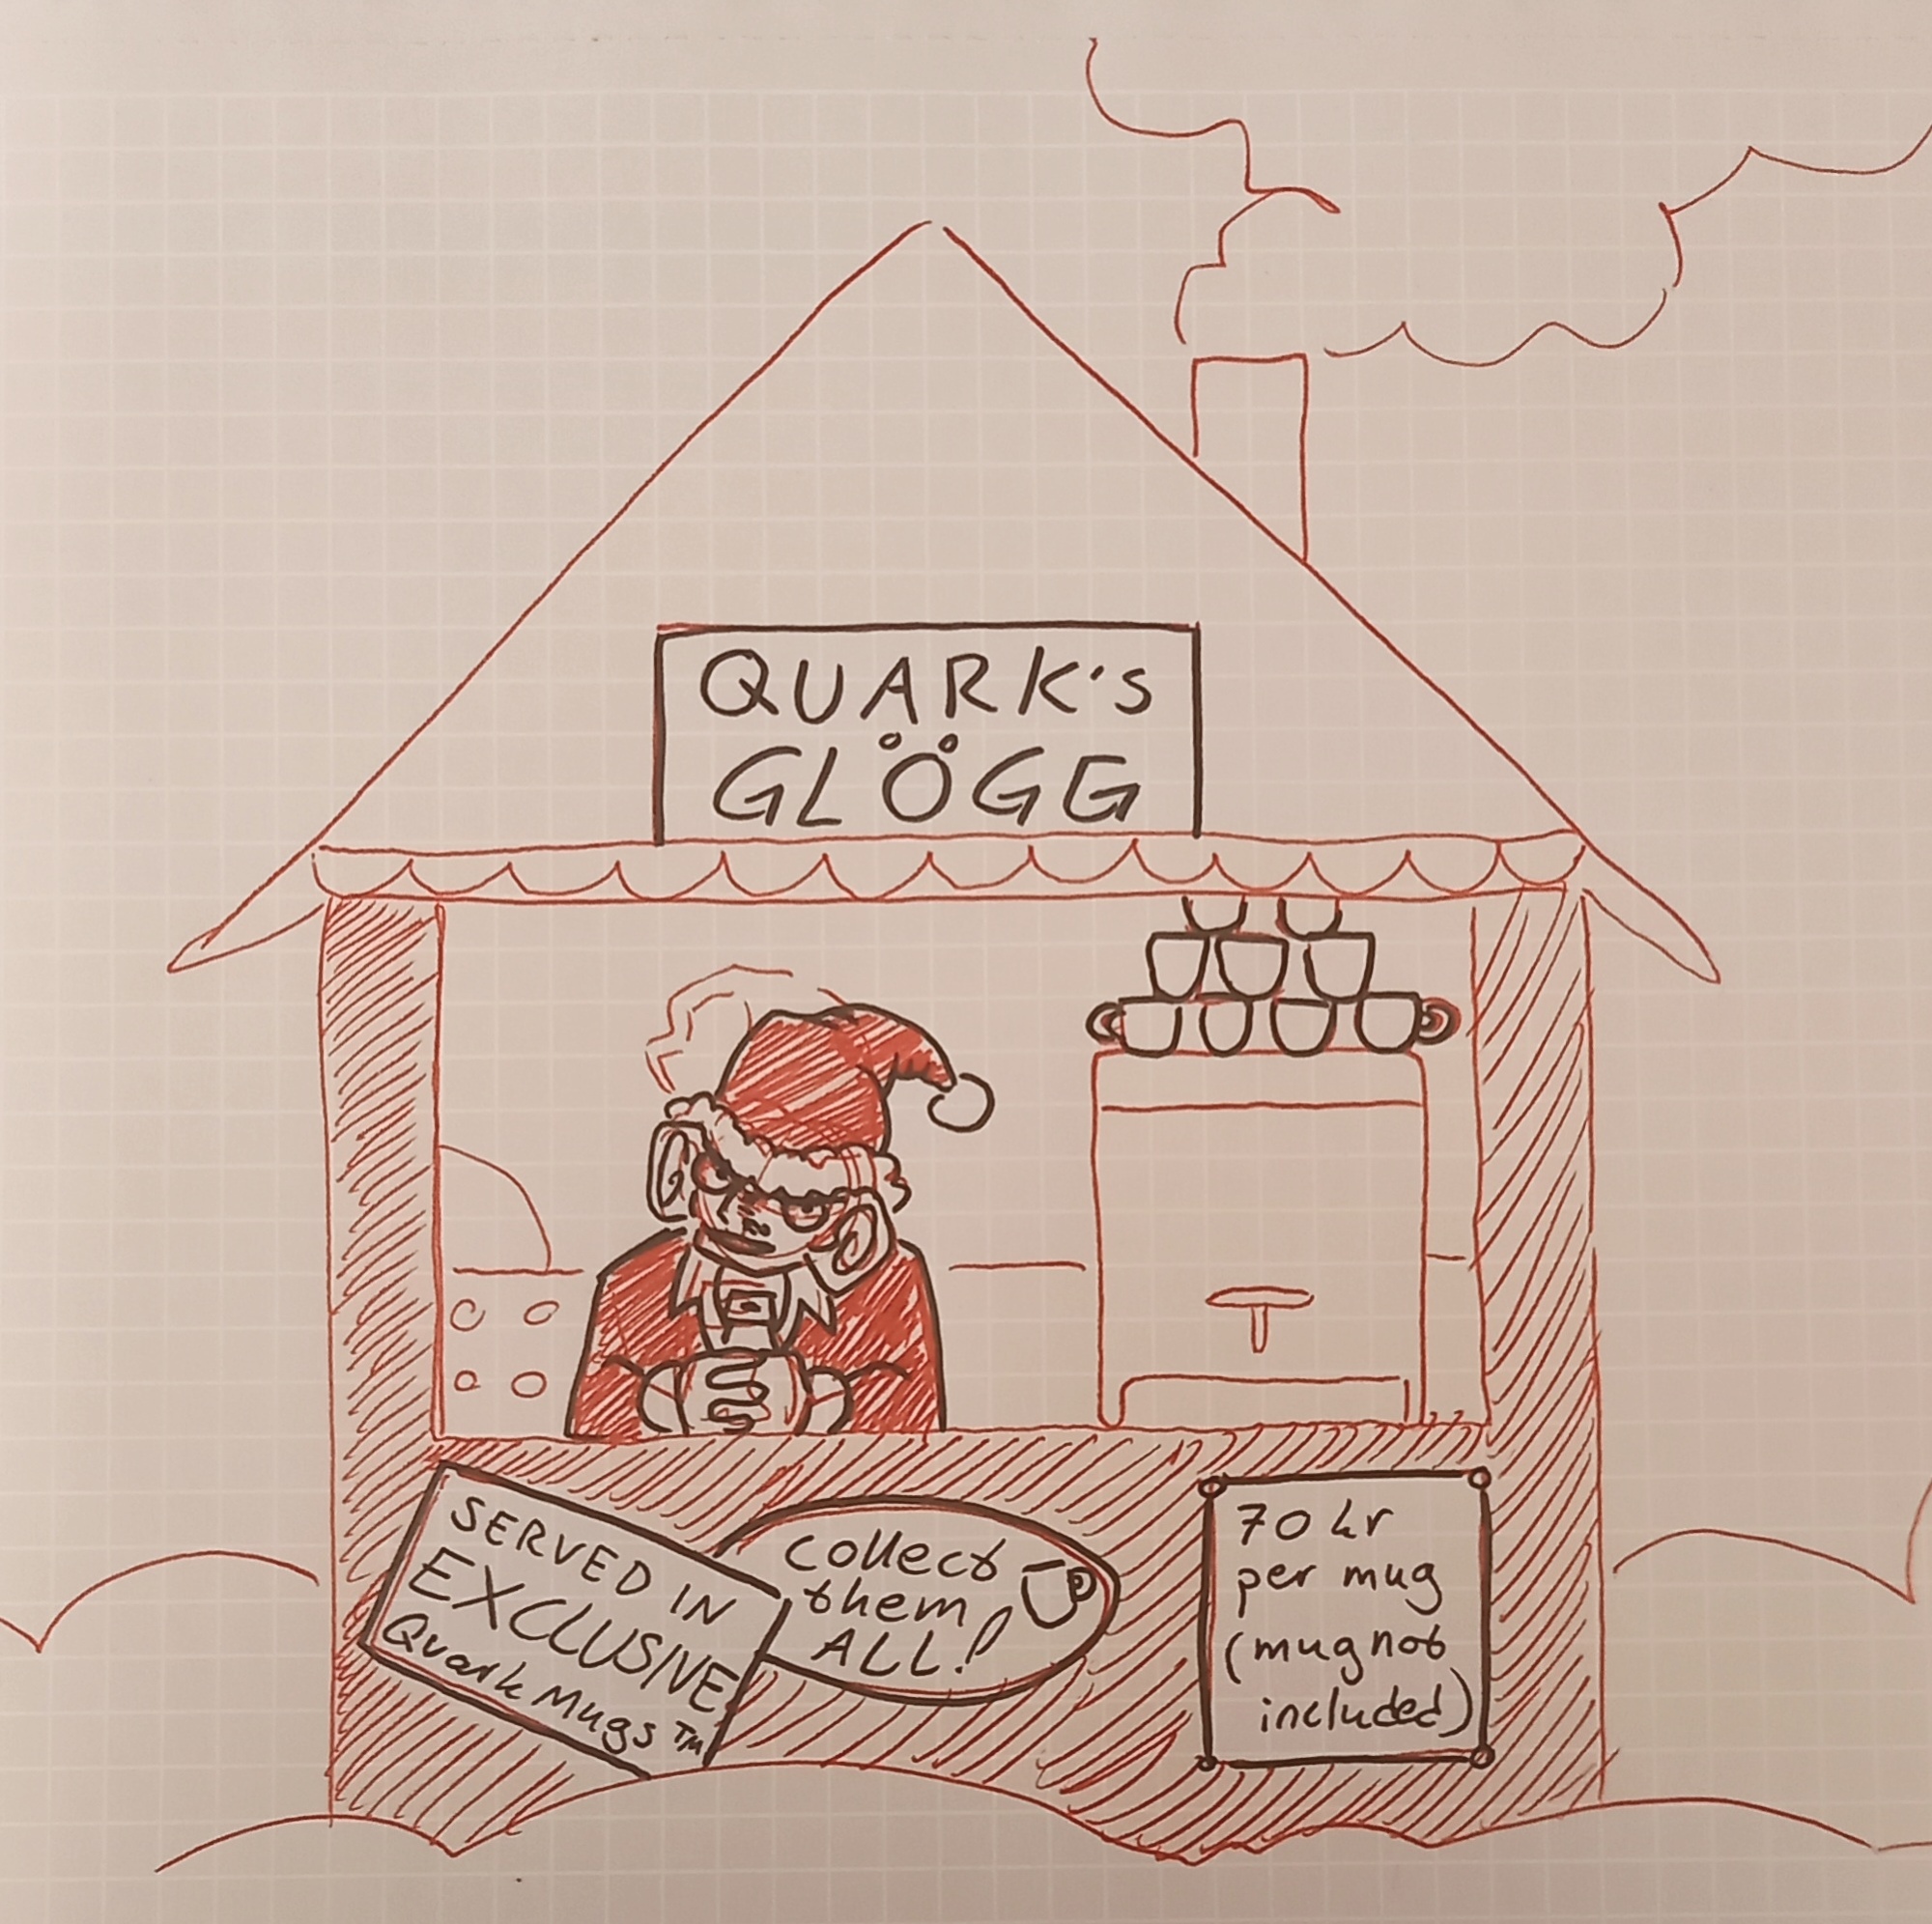 QUARK's
GLÖGG
SERVED IN
EXCLUSIVE
Quark Mugs™
collect
them
ALL!
70 kr
per mug
(mug not
included)